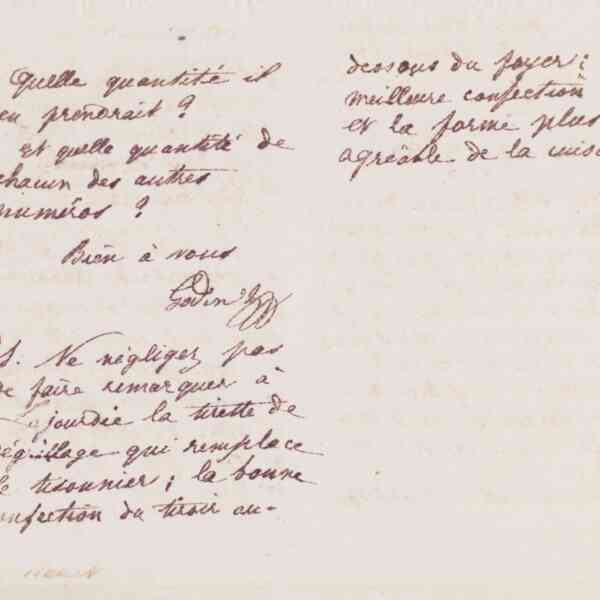 Quelle quantité il
en prendrait ?
Et quelle quantité de
chacun des autres
numéros ?
Bien à vous
Godin
S. Ne négligez pas
de faire remarquer à
Lajourdie la tirette de
dégrillage qui remplace
le tisonnier ; la bonne
confection du tiroir au-
dessous du foyer ;
meilleure confection
et la forme plus
agréable de la